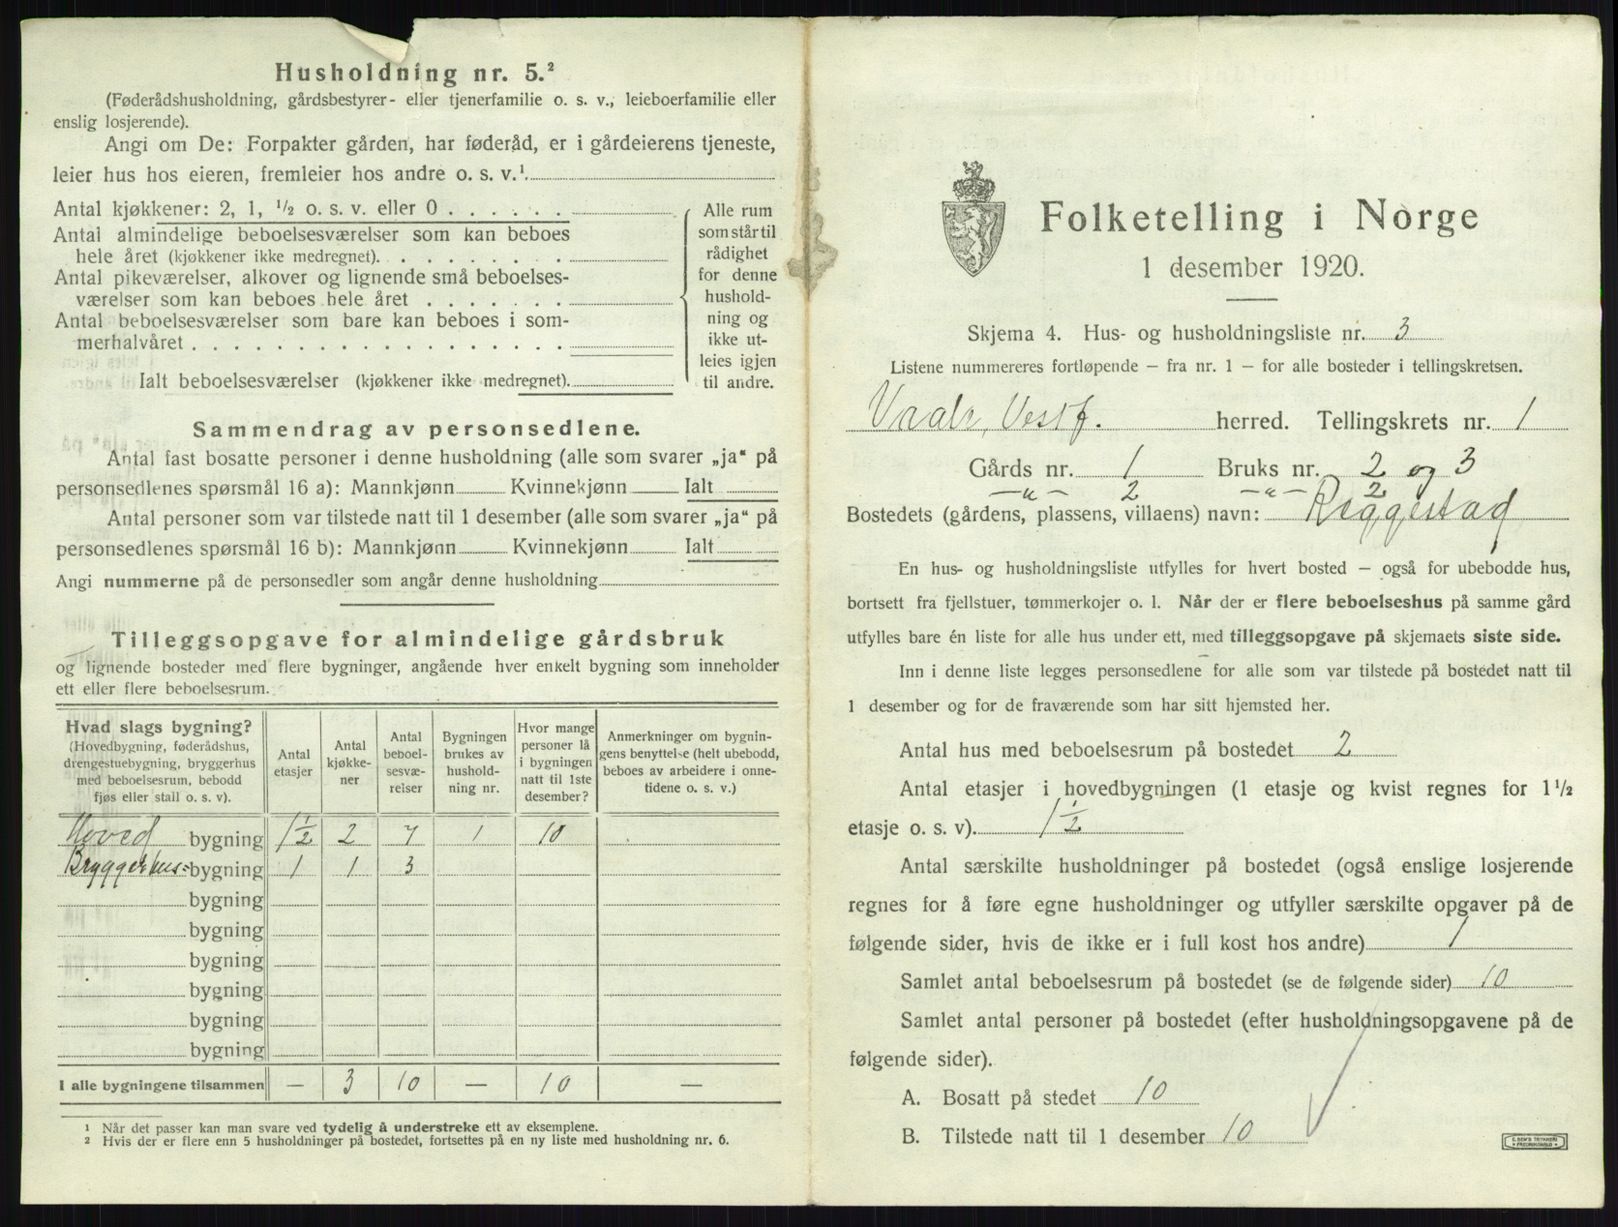 Husholdning nr. 5.²
(Føderådshusholdning, gårdsbestyrer- eller tjenerfamilie o. s. v., leieboerfamilie eller
enslig losjerende).
Angi om De: Forpakter gården, har føderåd, er i gårdeierens tjeneste,
leier hus hos eieren, fremleier hos andre o. s. v.¹.
Antal kjøkkener: 2, 1, ½ o. s. v. eller 0
Antal almindelige beboelsesværelser som kan beboes
hele året (kjøkkener ikke medregnet).
Antal pikeværelser, alkover og lignende små beboelses-
værelser som kan beboes hele året
Antal beboelsesværelser som bare kan beboes i som-
merhalvåret
Ialt beboelsesværelser (kjøkkener ikke medregnet).
Alle rum
som står til
rådighet
for denne
hushold-
ning og
ikke ut-
leies igjen
til andre.
Sammendrag av personsedlene.
Antal fast bosatte personer i denne husholdning (alle som svarer „ja“ på
personsedlenes spørsmål 16 a): Mannkjønn Kvinnekjønn Ialt
Antal personer som var tilstede natt til 1 desember (alle som svarer „ja“ på
personsedlenes spørsmål 16 b): Mannkjønn Kvinnekjønn Ialt
Angi nummerne på de personsedler som angår denne husholdning
Tilleggsopgave for almindelige gårdsbruk
og lignende bosteder med flere bygninger, angående hver enkelt bygning som inneholder
ett eller flere beboelsesrum.
Hvad slags bygning?
(Hovedbygning, føderådshus,
drengestuebygning, bryggerhus
med beboelsesrum, bebodd
fjøs eller stall o. s. v).
Antal
etasjer
Antal
kjøkke-
ner
Antal
beboel-
sesvæ-
relser
Bygningen
brukes av
hushold-
ning nr.
Hvor mange
personer lå
i bygningen
natt til 1ste
desember?
Anmerkninger om bygnin-
gens benyttelse (helt ubebodd,
beboes av arbeidere i onne-
tidene o. s. v.)
Hoved bygning 1½ 2 7 1 10
Bryggerhus- bygning 1 1 3
bygning
bygning
bygning
bygning
bygning
bygning
I alle bygningene tilsammen — 3 10 — 10 —
¹ Når det passer kan man svare ved tydelig å understreke ett av eksemplene.
² Hvis der er flere enn 5 husholdninger på bostedet, fortsettes på en ny liste med husholdning nr. 6.
Folketelling i Norge
1 desember 1920.
Skjema 4. Hus- og husholdningsliste nr. 3
Listene nummereres fortløpende — fra nr. 1 — for alle bosteder i tellingskretsen.
Vaale, Vestf. herred. Tellingskrets nr. 1
Gårds nr. 1 Bruks nr. 2 og 3
—"— 2 —"— 2
Bostedets (gårdens, plassens, villaens) navn: Reggestad
En hus- og husholdningsliste utfylles for hvert bosted — også for ubebodde hus,
bortsett fra fjellstuer, tømmerkojer o. l. Når der er flere beboelseshus på samme gård
utfylles bare én liste for alle hus under ett, med tilleggsopgave på skjemaets siste side.
Inn i denne liste legges personsedlene for alle som var tilstede på bostedet natt til
1 desember og for de fraværende som har sitt hjemsted her.
Antal hus med beboelsesrum på bostedet 2
Antal etasjer i hovedbygningen (1 etasje og kvist regnes for 1½
etasje o. s. v). 1½
Antal særskilte husholdninger på bostedet (også enslige losjerende
regnes for å føre egne husholdninger og utfyller særskilte opgaver på de
følgende sider, hvis de ikke er i full kost hos andre) 1
Samlet antal beboelsesrum på bostedet (se de følgende sider) 10
Samlet antal personer på bostedet (efter husholdningsopgavene på de
følgende sider).
A. Bosatt på stedet 10
B. Tilstede natt til 1 desember 10